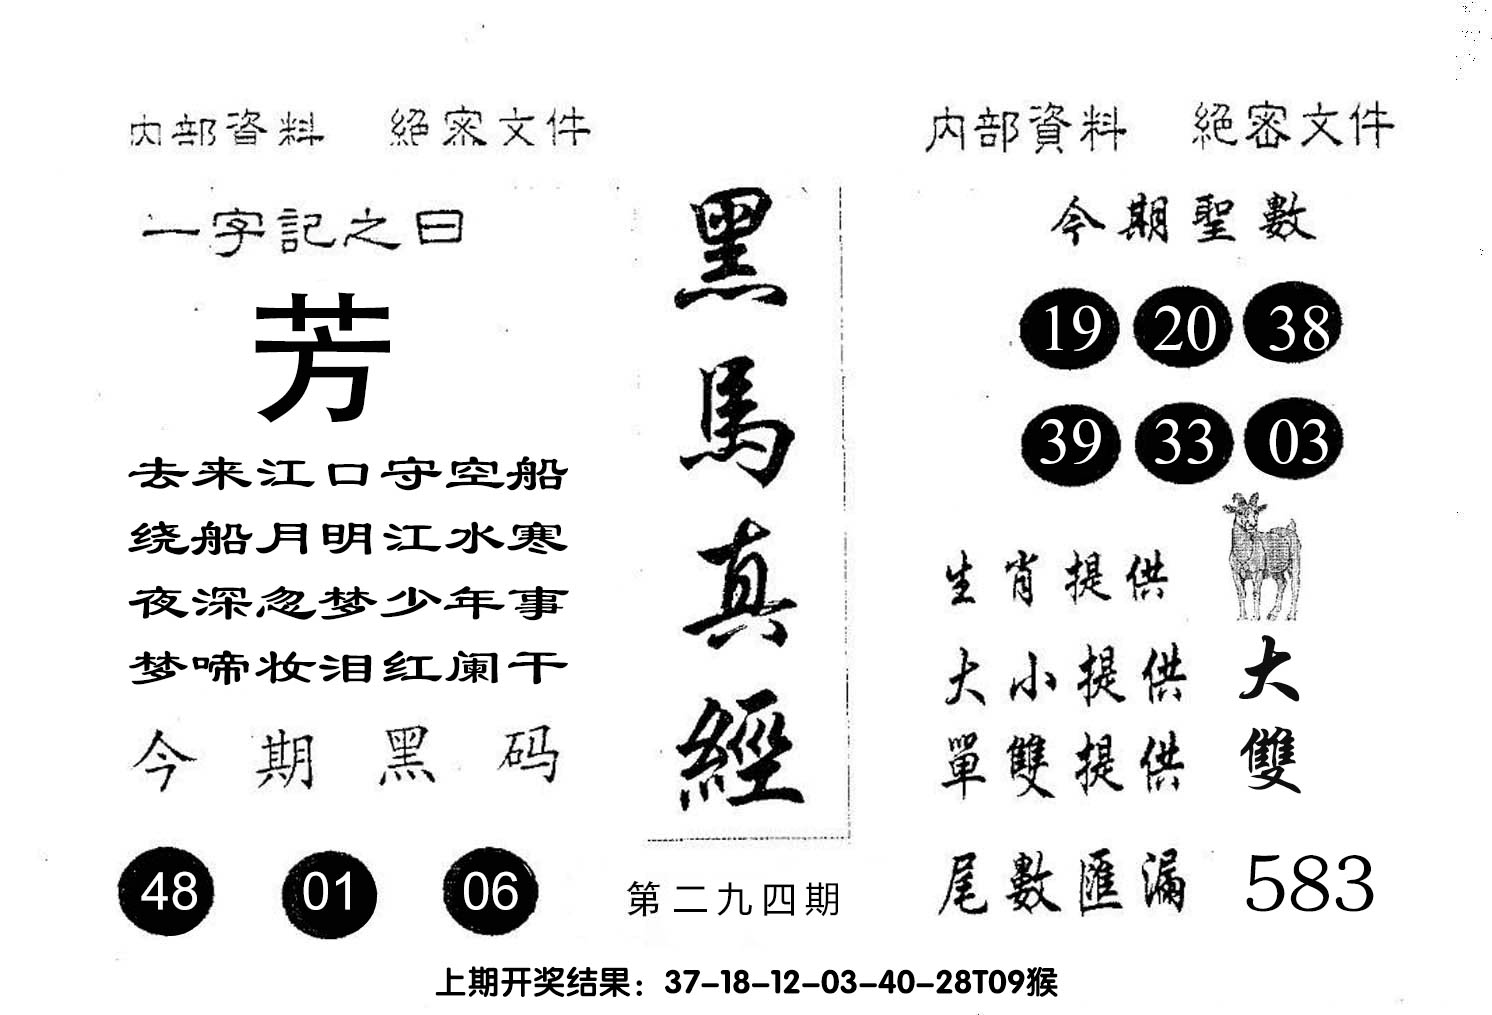 内部資料　絕密文件
一字記之曰
芳
去来江口守空船
绕船月明江水寒
夜深忽梦少年事
梦啼妆泪红阑干
今期黑码
48 01 06
黑馬真經
第二九四期
内部資料　絕密文件
今期聖數
19 20 38
39 33 03
生肖提供
大小提供 大
單雙提供 雙
尾數匯漏 583
上期开奖结果：37-18-12-03-40-28T09猴